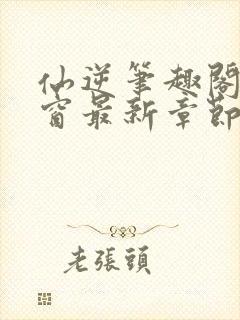 仙逆筆趣閣
窗最新章節
老張頭